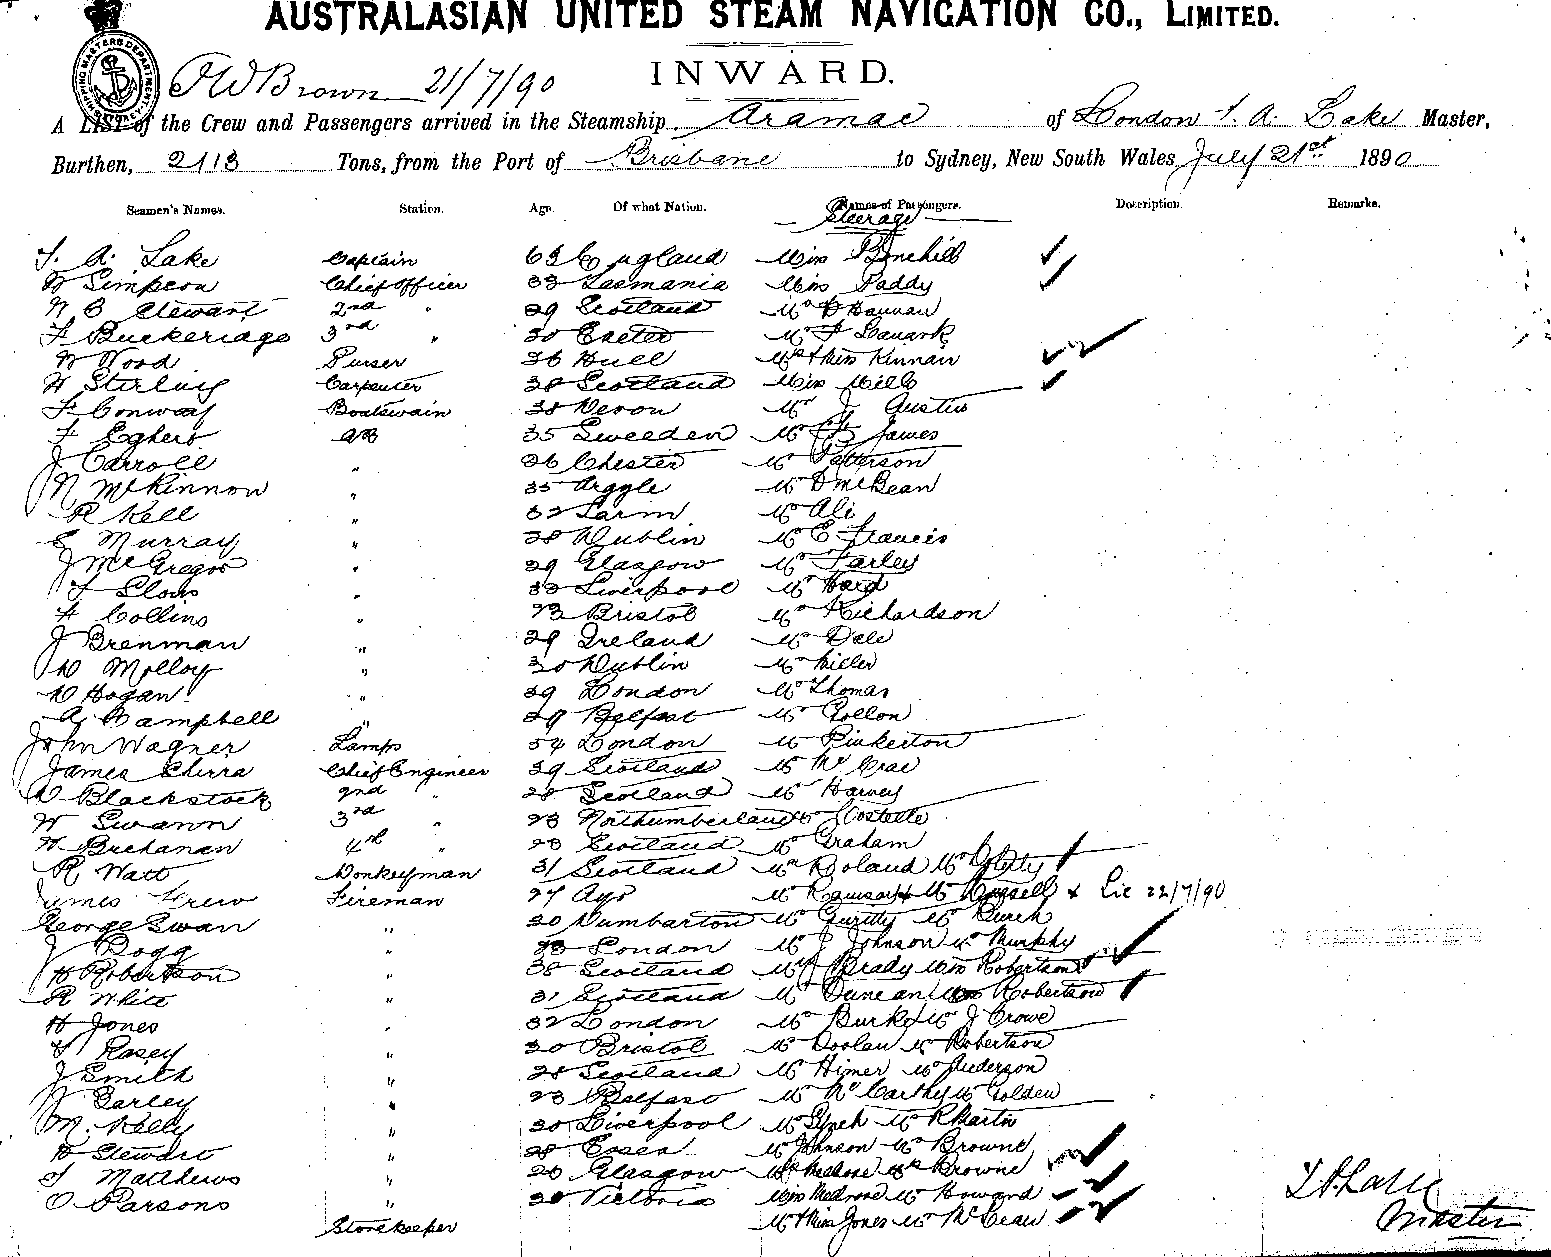 AUSTRALASIAN UNITED STEAM NAVIGATION CO., LIMITED.
SHIPPING MASTERS DEPARTMENT
Brown 21/7/90 INWARD.
A LIST of the Crew and Passengers arrived in the Steamship Aramac of London T. A. Lake Master,
Burthen, 2113 Tons, from the Port of Brisbane to Sydney, New South Wales July 21st 1890
Seamen's Names. Station. Age. Of what Nation. Names of Passengers. Description. Remarks.
Steerage
T. A. Lake Captain 63 England Miss Bonehill
W Simpson Chief Officer 33 Tasmania Miss Paddy
Stewart 2nd " 29 Scotland Mr Hannan
F Buckeridge 3rd " 30 Exeter Mr F Lanark
W Wood Purser 36 Hull Mrs & Miss Kinnair
H Stirling Carpenter 38 Scotland Miss Mills
F Conway Boatswain 38 Devon Mr J Austin
F Eghers AB 35 Sweeden Mr James
J Carroll " 26 Chester Mr Patterson
N McKinnon " 35 Argyle Mr D McBean
R Kell " 32 Larm Mr Ali
E Murray " 38 Dublin Mr E Francis
J McGregor " 29 Glasgow Mr Farley
" 33 Liverpool Mr Ward
F Collins " 23 Bristol Mr Richardson
J Brennan " 29 Ireland Mr Dale
D Molloy " 30 Dublin Mr Miller
D Hogan " 39 London Mr Thomas
A Campbell " 29 Belfast Mr Gollon
John Wagner Lamps 54 London Mr Pinkerton
James Shirra Chief Engineer 39 Scotland Mr McCrae
D Blackstock 2nd " 28 Scotland Mr Harvey
W Swann 3rd " 23 Northumberland Mr Costello
W Buchanan 4th " 23 Scotland Mr Graham
R Watt Donkeyman 31 Scotland Mr Roland Mr
James Frew Fireman 27 Ayr Mr Ramsay Mr Russell + Lie 22/7/90
George Swan " 30 Dumbarton Mr Mr Burch
J Dogg " 23 London Mr J Johnson Mr Murphy
H Robertson " 38 Scotland Mr J Brady Miss Robertson
R White " 31 Scotland Mr Duncan Miss Robertson
H Jones " 32 London Mr Burke Mr J Crowe
Rasey " 30 Bristol Mr Doolan Mr Robertson
J Smith " 28 Scotland Mr Himer Mr Anderson
Earley " 23 Belfast Mr McCarthy Mr Golden
M. Kelly " 30 Liverpool Mr Lynch Mr R Martin
H Stewart " 28 Essex Mr Johnson Mr Browne
T Matthews " 26 Glasgow Mrs Melrose Mrs Browne
O Parsons " 30 Victoria Miss Melrose Mr Howard
Storekeeper Mr & Miss Jones Mr McLean
T A Lake
Master